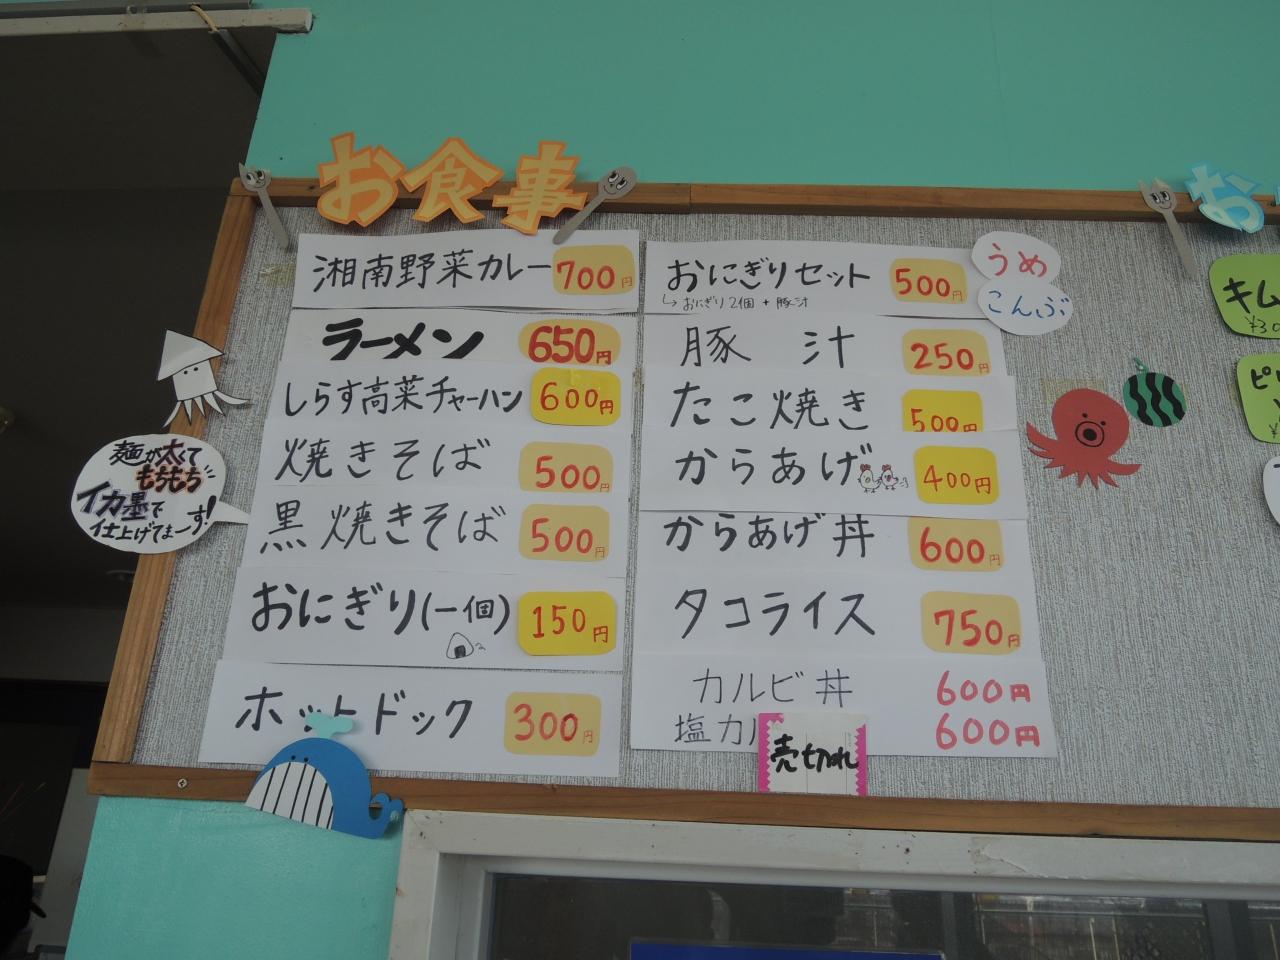 お食事
湘南野菜カレー 700円
ラーメン 650円
しらす高菜チャーハン 600円
焼きそば 500円
黒焼きそば 500円
麺が太くて
もちもち
イカ墨で
仕上げてまーす!
おにぎり(一個) 150円
ホットドック 300円
おにぎりセット 500円
↳おにぎり2個+豚汁
うめ
こんぶ
豚汁 250円
たこ焼き 500円
からあげ 400円
からあげ丼 600円
タコライス 750円
カルビ丼 600円
塩カル 600円
売切れ
お
キム
¥30
ピリ
¥